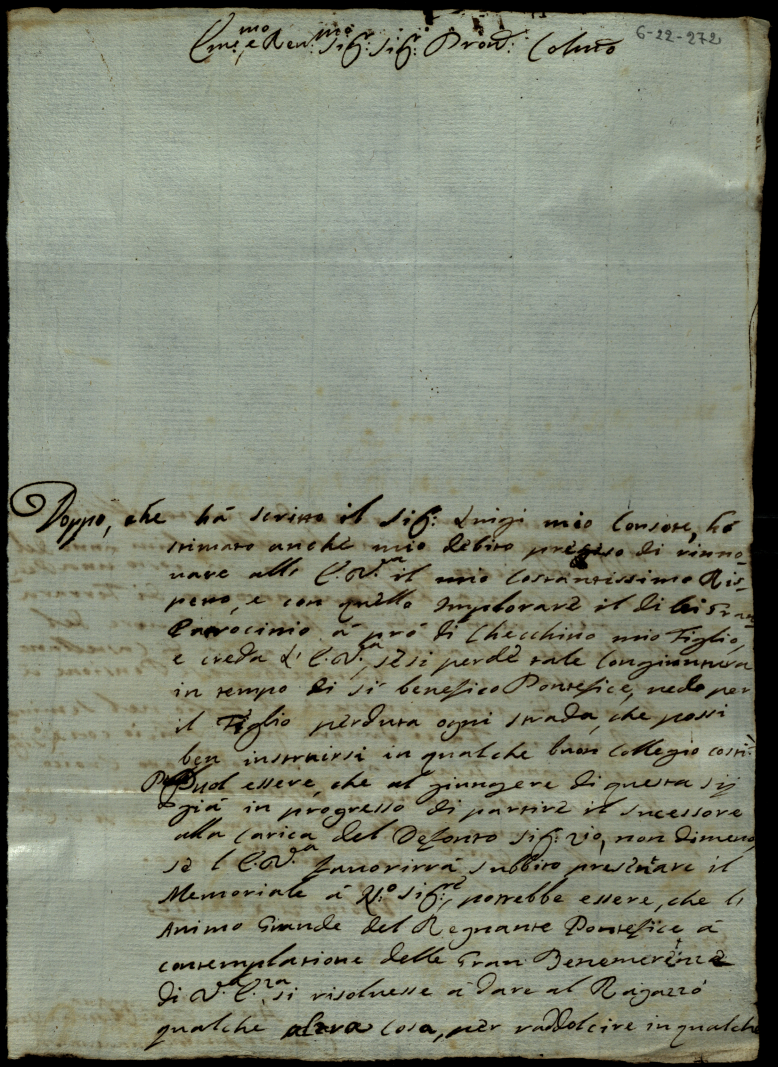 Em:mo e Ren:mo Sig:r Sig:r Pron: Colmo
6-22-272
Doppo, che hà scritto il Sig: Luigi mio Consorte, hó
stimato anche mio debito preciso di rinno-
uare alla E.V.ra il mio costantissimo Ris-
petto, e con quello implorare il di lei Gran
Patrocinio à prò di Checchino mio Figlio,
e creda L'E.V.ra, se si perde tale Congiuntura
in tempo di sì benefico Pontefice, uedo per
il Figlio perduta ogni strada, che possi
ben instruirsi in qualche buon Collegio costì.
Puol essere, che al giungere di questa sij
già in progresso di partire il sucessore
alla Carica del Defonto Sig: Zio, non dimeno
se l'E.V.ra fauorirrà subbito presentare il
Memoriale à N:ro Sig:re, potrebbe essere, che l'
Animo Grande del Regnante Pontefice à
contemplatione delle Gran Benemerenze
di V.ra E.za si risoluesse à dare al Ragazzo
qualche altra Cosa, per raddolcire in qualche